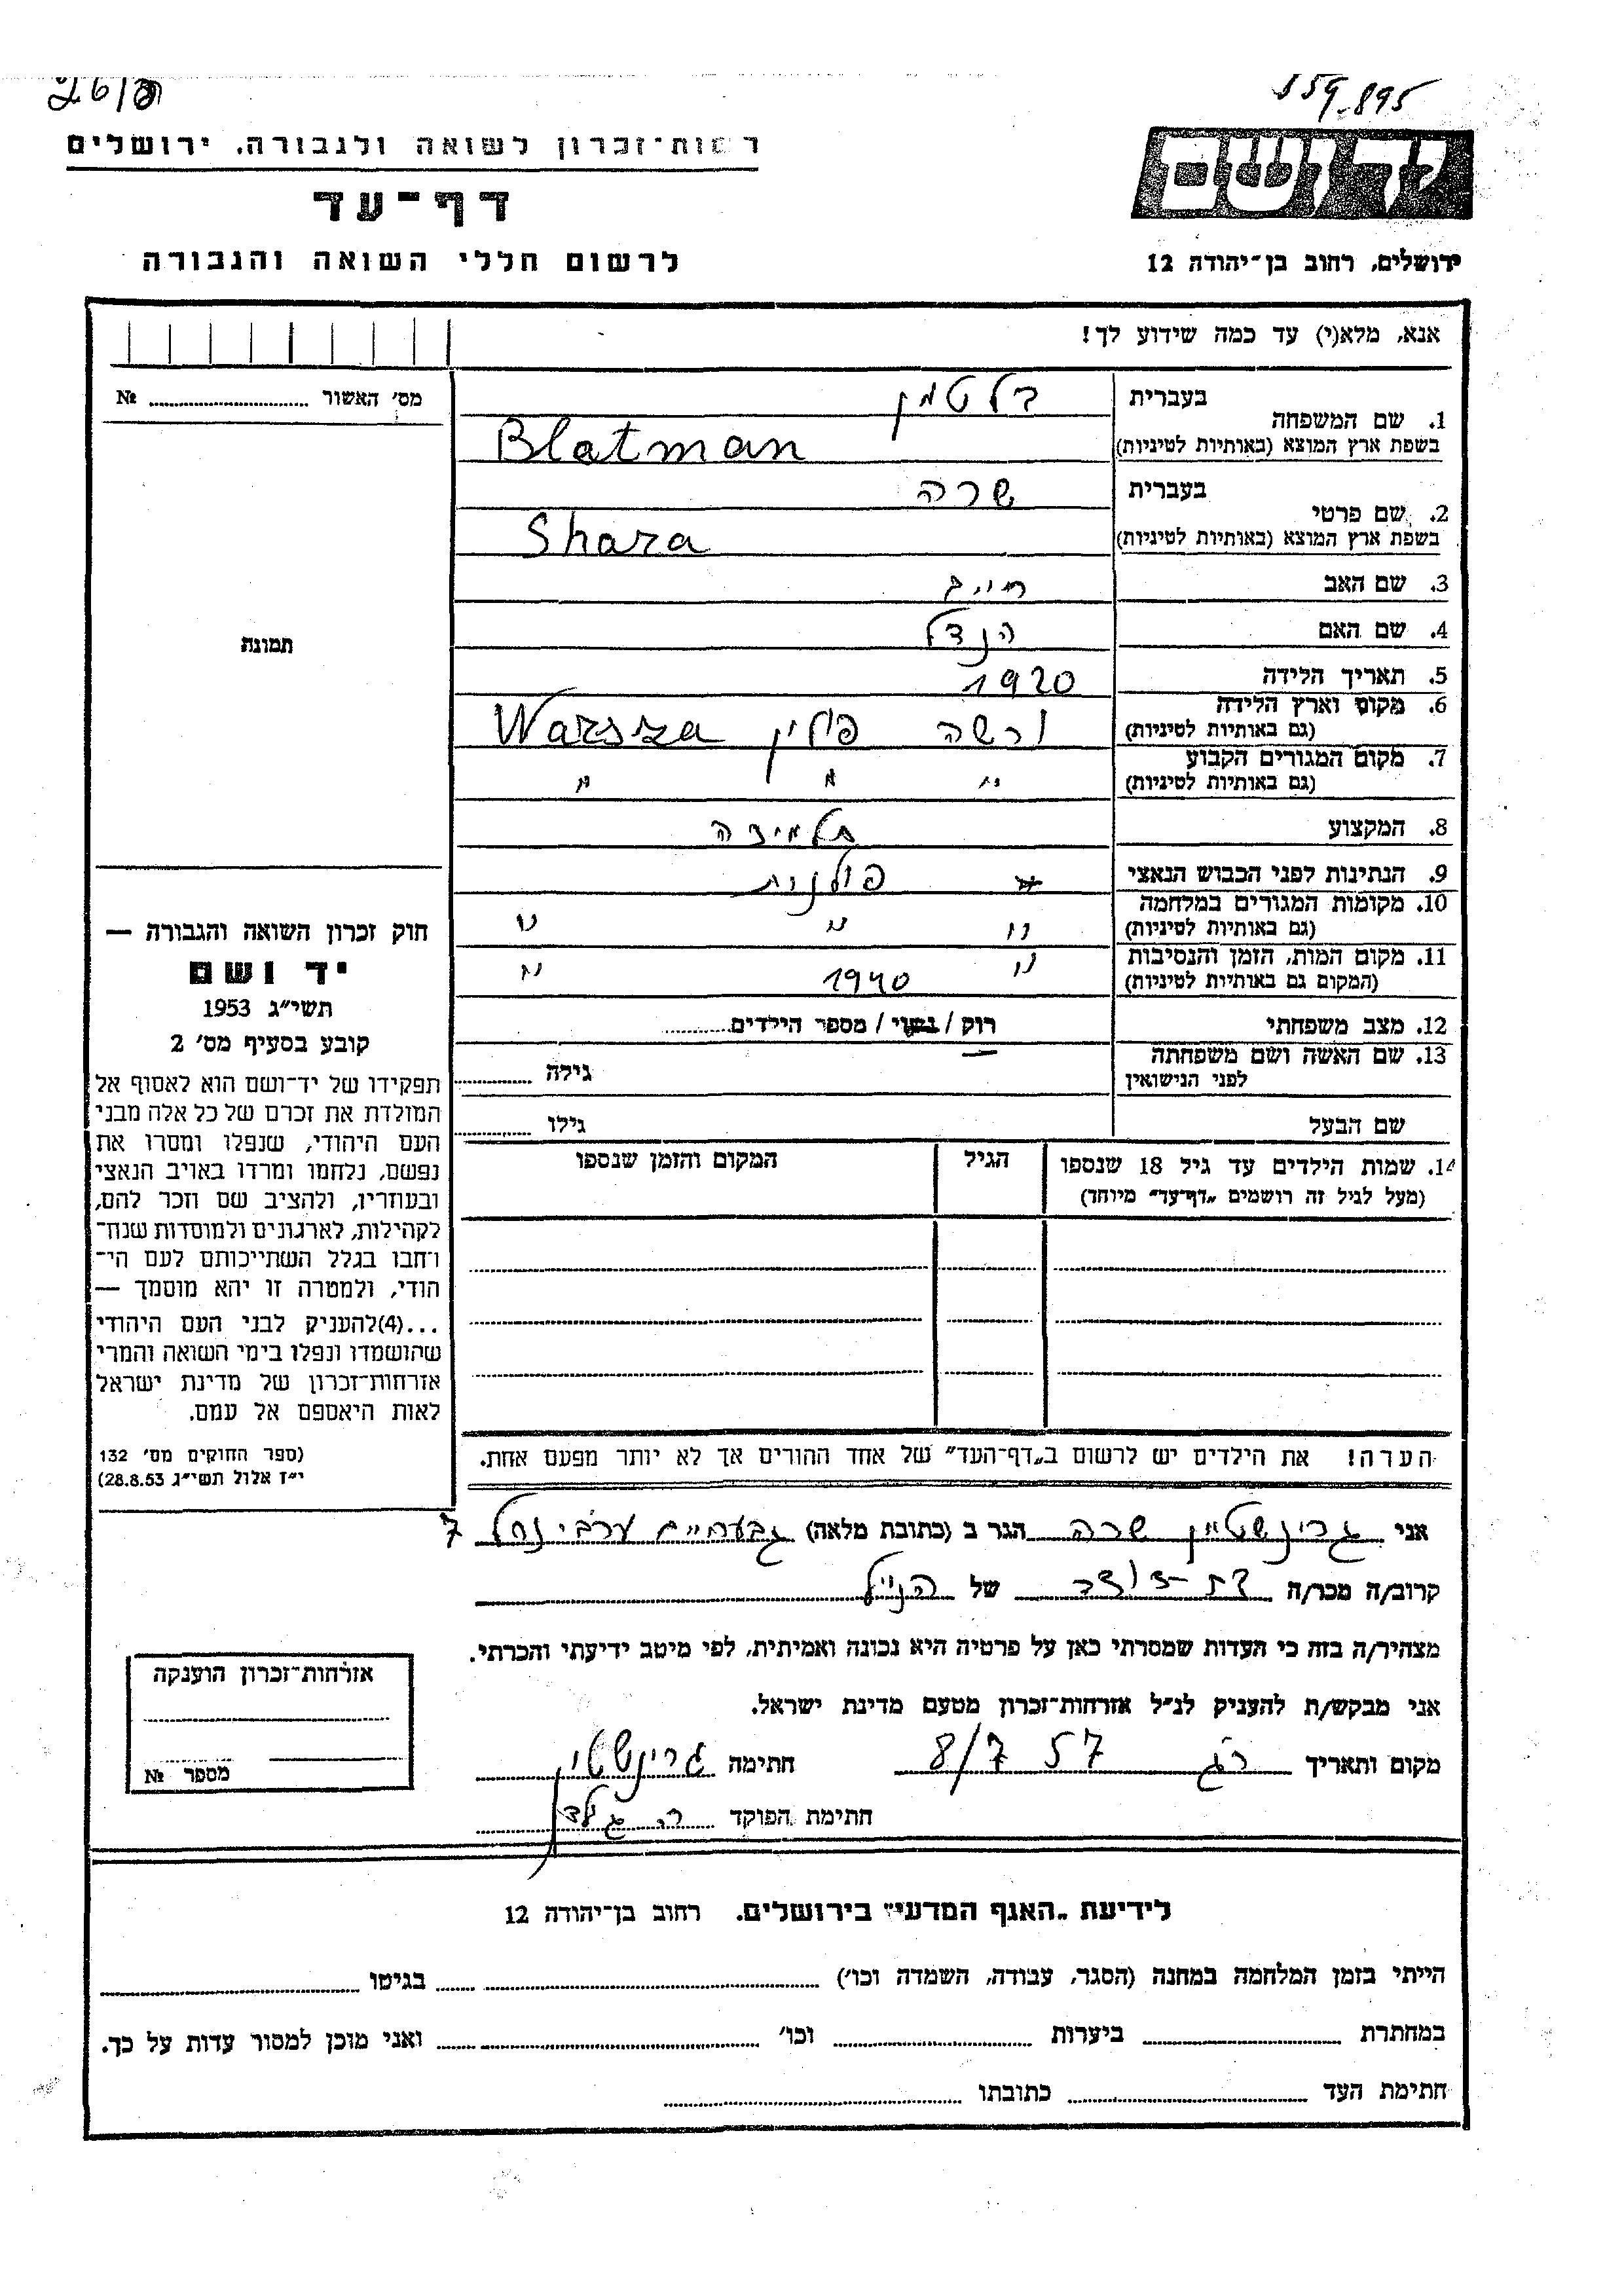 159.895
רשות־זכרון לשואה ולגבורה. ירושלים
דף־עד
לרשום חללי השואה והגבורה
יד ושם
ירושלים, רחוב בן־יהודה 12
אנא, מלא(י) עד כמה שידוע לך!
מס׳ האשור № 
1. שם המשפחה
בעברית בלטמן
בשפת ארץ המוצא (באותיות לטיניות) Blatman
2. שם פרטי
בעברית שרה
בשפת ארץ המוצא (באותיות לטיניות) Shara
3. שם האב חיים
4. שם האם הנדל
5. תאריך הלידה 1920
6. מקום וארץ הלידה ורשה פולין Warsza
(גם באותיות לטיניות)
7. מקום המגורים הקבוע " " "
(גם באותיות לטיניות)
8. המקצוע תלמידה
9. הנתינות לפני הכבוש הנאצי פולנית
10. מקומות המגורים במלחמה " " "
(גם באותיות לטיניות)
11. מקום המות, הזמן והנסיבות " 1940 "
(המקום גם באותיות לטיניות)
12. מצב משפחתי רוק / נשוי / מספר הילדים
13. שם האשה ושם משפחתה גילה
לפני הנישואין
שם הבעל גילו
14. שמות הילדים עד גיל 18 שנספו הגיל המקום והזמן שנספו
(מעל לגיל זה רושמים „דף־עד״ מיוחד)
הערה! את הילדים יש לרשום ב„דף־העד״ של אחד ההורים אך לא יותר מפעם אחת.
תמונה
חוק זכרון השואה והגבורה —
יד ושם
תשי״ג 1953
קובע בסעיף מס׳ 2
תפקידו של יד־ושם הוא לאסוף אל
המולדת את זכרם של כל אלה מבני
העם היהודי, שנפלו ומסרו את
נפשם, נלחמו ומרדו באויב הנאצי
ובעוזריו, ולהציב שם וזכר להם,
לקהילות, לארגונים ולמוסדות שנח־
רחבו בגלל השתייכותם לעם הי־
הודי, ולמטרה זו יהא מוסמך —
...(4)להעניק לבני העם היהודי
שהושמדו ונפלו בימי השואה והמרי
אזרחות־זכרון של מדינת ישראל
לאות היאספם אל עמם.
(ספר החוקים מס׳ 132
י״ז אלול תשי״ג 28.8.53)
אני גרינשטיין שרה הגר ב (כתובת מלאה) גבעתיים ערבי נחל 7
קרוב/ה מכר/ה בת-דודה של הנ״ל
מצהיר/ה בזה כי העדות שמסרתי כאן על פרטיה היא נכונה ואמיתית, לפי מיטב ידיעתי והכרתי.
אני מבקש/ת להעניק לנ״ל אזרחות־זכרון מטעם מדינת ישראל.
מקום ותאריך רג 8/7 57 חתימה גרינשטיין
חתימת הפוקד
אזרחות־זכרון הוענקה
מספר №
לידיעת „האגף המדעי״ בירושלים. רחוב בן־יהודה 12
הייתי בזמן המלחמה במחנה (הסגר, עבודה, השמדה וכו׳) בגיטו
במחתרת ביערות וכו׳ ואני מוכן למסור עדות על כך.
חתימת העד כתובתו